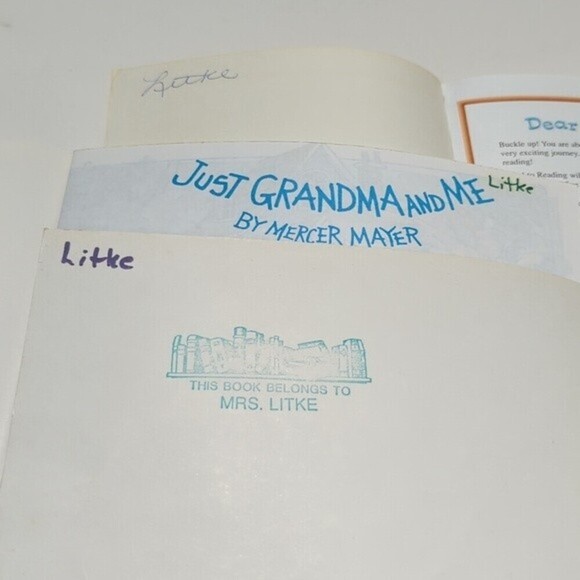 Litke
Dear
Buckle up! You are abo
very exciting journey.
reading!
to Reading will
JUST GRANDMA AND ME
Litke
BY MERCER MAYER
Litke
THIS BOOK BELONGS TO
MRS. LITKE